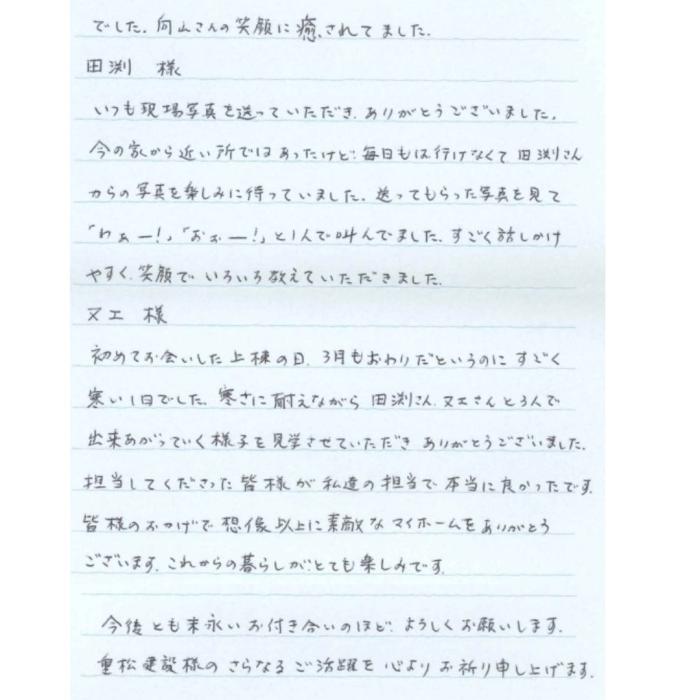 でした。向山さんの笑顔に癒されてました。
田渕　様
いつも現場写真を送っていただき、ありがとうございました。
今の家から近い所ではあったけど、毎日もは行けなくて 田渕さん
からの写真を楽しみに待っていました。送ってもらった写真を見て
「わぁー!」、「おぉー!」と1人で叫んでました。すごく話しかけ
やすく、笑顔で いろいろ教えていただきました。
又エ　様
初めてお会いした上棟の日、3月もおわりだというのに すごく
寒い1日でした。寒さに耐えながら 田渕さん、又エさんと3人で
出来あがっていく様子を見学させていただき ありがとうございました。
担当してくださった皆様が 私達の担当で本当に良かったです。
皆様のおかげで 想像以上に素敵な マイホームをありがとう
ございます。これからの暮らしが、とても楽しみです。
今後とも末永いお付き合いのほど、よろしくお願いします。
重松建設様の さらなる ご活躍を 心より お祈り申し上げます。